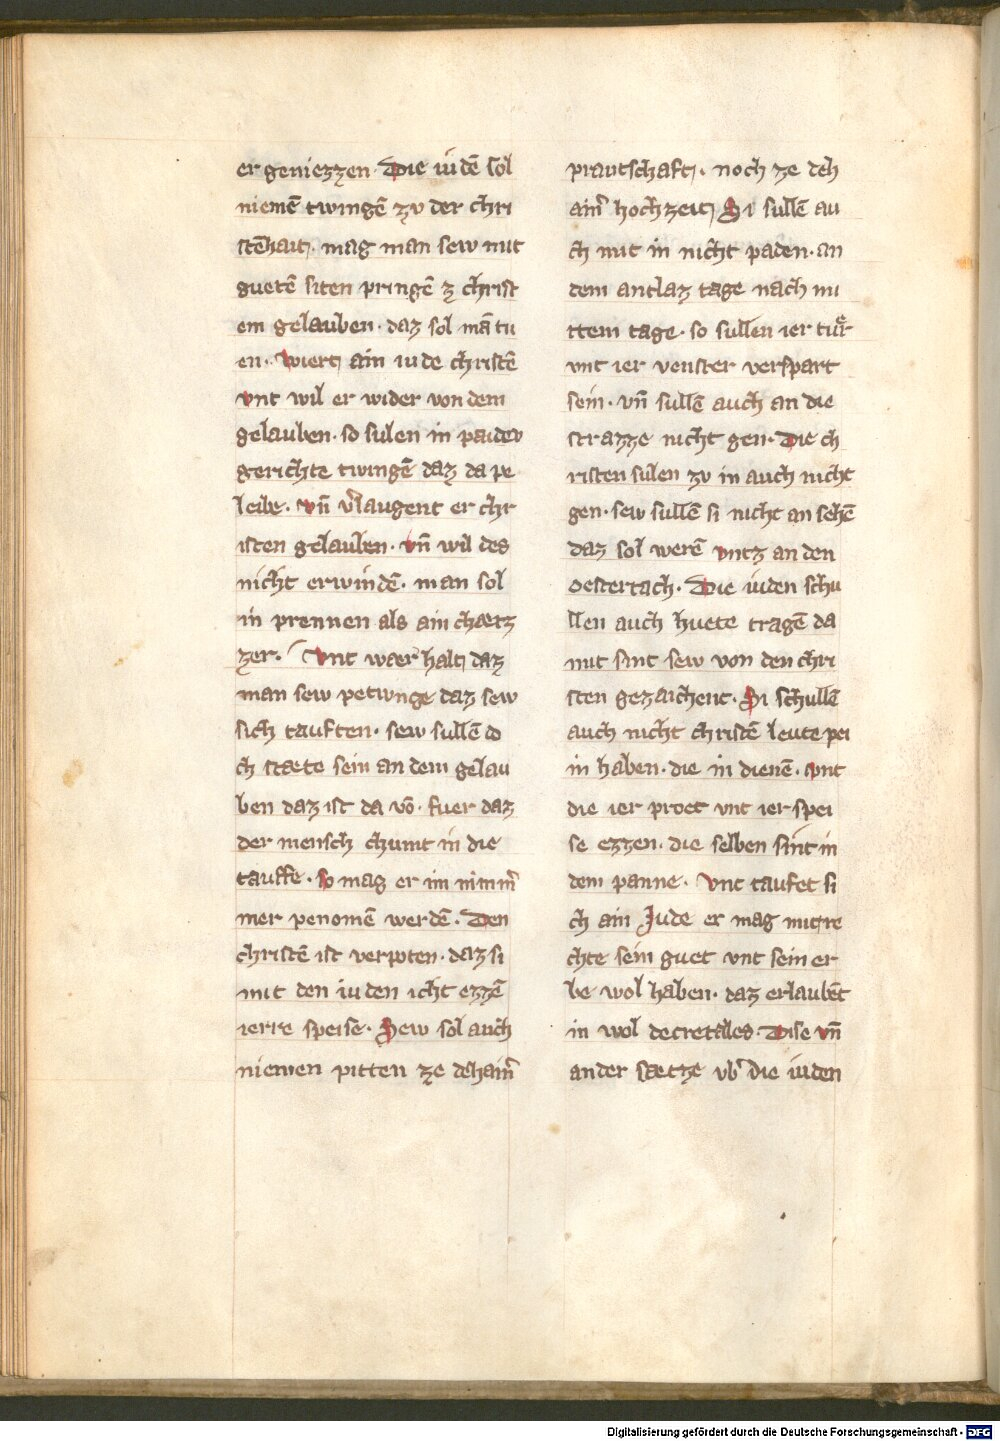 er geniezzen. Die iudē sol
niemē twingē zv der chri
stēhait. mag man sew mit
guetē siten pringē z christ
em gelauben. daz sol mā tu
en. Wiert ain iude christē
vnt wil er wider von dem
gelauben. so sulen in paidev
gerichte twingē daz da pe
leibe. vn̄ v̉laugent er chr
isten gelauben. vn̄ wil des
nicht erwindē. man sol
in prennen als ain chætz
zer. Vnt waer halt daz
man sew petwnge daz sew
sich tauften. sew sullē do
ch stæte sein an dem gelau
ben daz ist da vō. fuer daz
der mensch chumt in die
tauffe. so mag er im nimm̉
mer penomē werdē. Den
christē ist verpoten. daz si
mit den iuden icht ezzē
ierre speise. Sew sol auch
niemen pitten ze dehain̉
prautschaft. noch ze deh
ain̉ hochzeit Si sullē au
ch mit in nicht paden. an
dem antlaz tage nach mi
ttem tage. so sullen ier tuͤr
vnt ier venster verspart
sein. vn̄ sullē auch an die
strazze nicht gen. Die ch
risten sulen zv in auch nicht
gen. sew sullē si nicht an sehē
daz sol werē vntz an den
oestertach. Die iuden schu
llen auch huete tragē da
mit sint sew von den chri
sten gezaichent. Si schullē
auch nicht christē leute pei
in haben. die in dienē. vnt
die ier proet vnt ier spei
se ezzen. die selben sint in
dem panne. Vnt taufet si
ch ain Jude er mag mit re
chte sein guet vnt sein er
be wol haben. daz erlaubēt
in wol decretales. Dise vn̄
ander sætze vb̉ die iuden
Digitalisierung gefördert durch die Deutsche Forschungsgemeinschaft - DFG